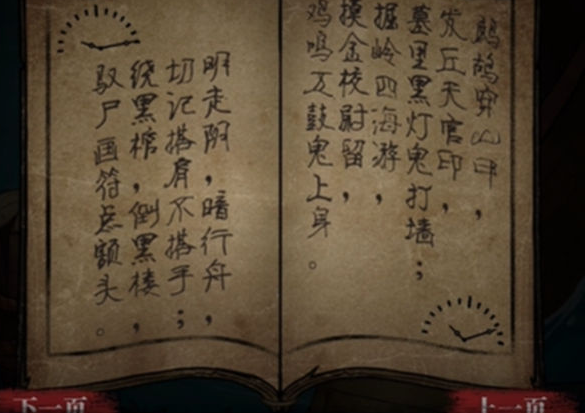 鹧鸪穿山甲，
发丘天官印，
墓里黑灯鬼打墙；
握岭四海游，
摸金校尉留，
鸡鸣五鼓鬼上身。
明走阴，暗行舟，
切记搭肩不搭手；
绕黑棺，倒黑楼，
驭尸画符点额头。
下一页
上一页